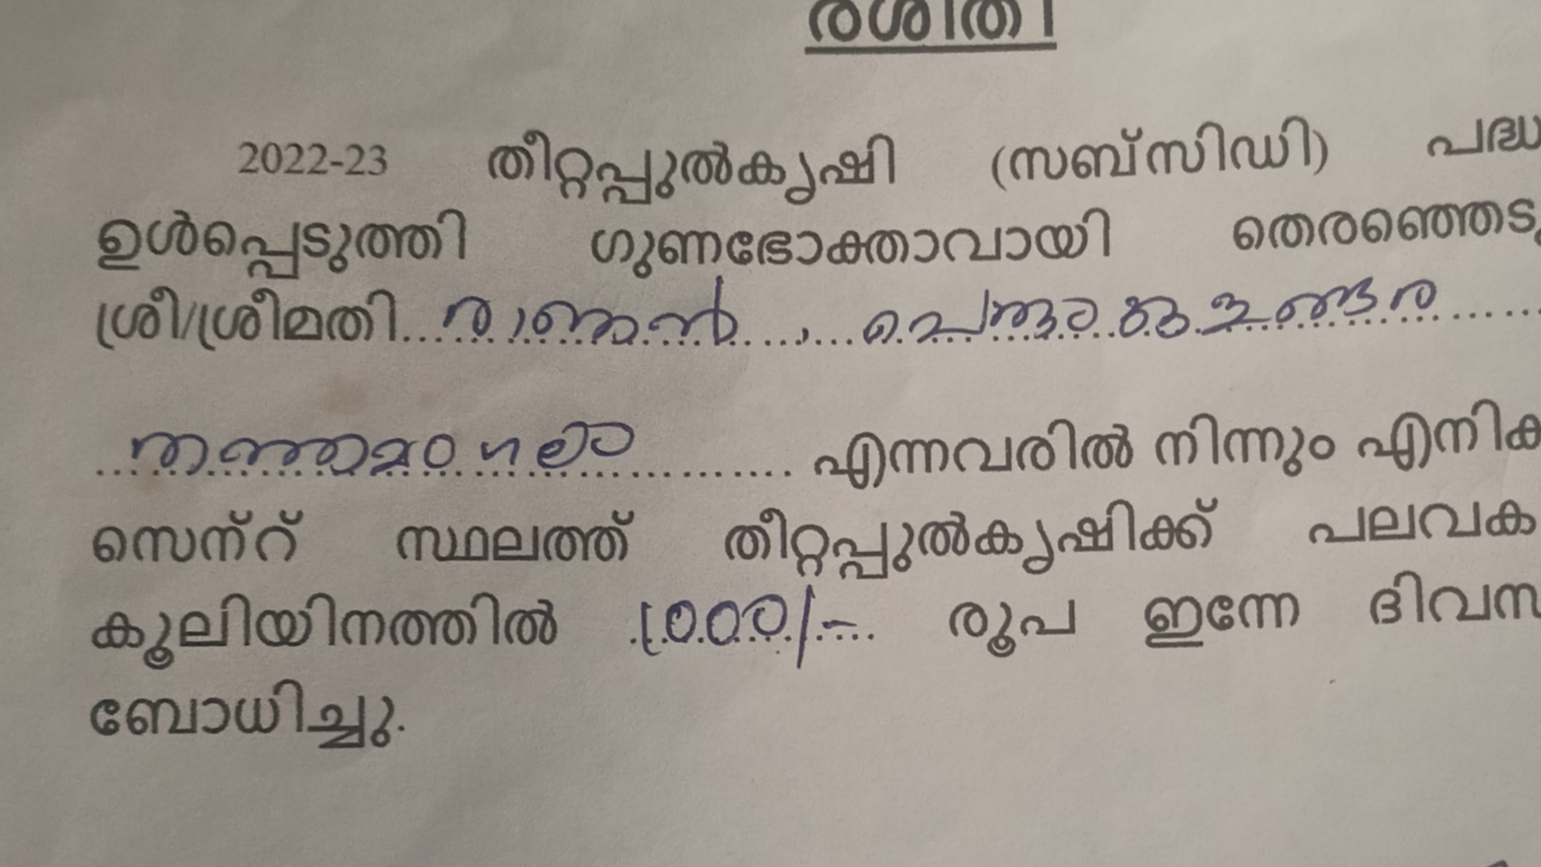 രശീതി
2022-23 തീറ്റപ്പുൽകൃഷി (സബ്സിഡി) പദ്ധ
ഉൾപ്പെടുത്തി ഗുണഭോക്താവായി തെരഞ്ഞെടു
ശ്രീ/ശ്രീമതി
തത്തമംഗലം എന്നവരിൽ നിന്നും എനിക
സെന്റ് സ്ഥലത്ത് തീറ്റപ്പുൽകൃഷിക്ക് പലവക
കൂലിയിനത്തിൽ 1000/- രൂപ ഇന്നേ ദിവസ
ബോധിച്ചു.